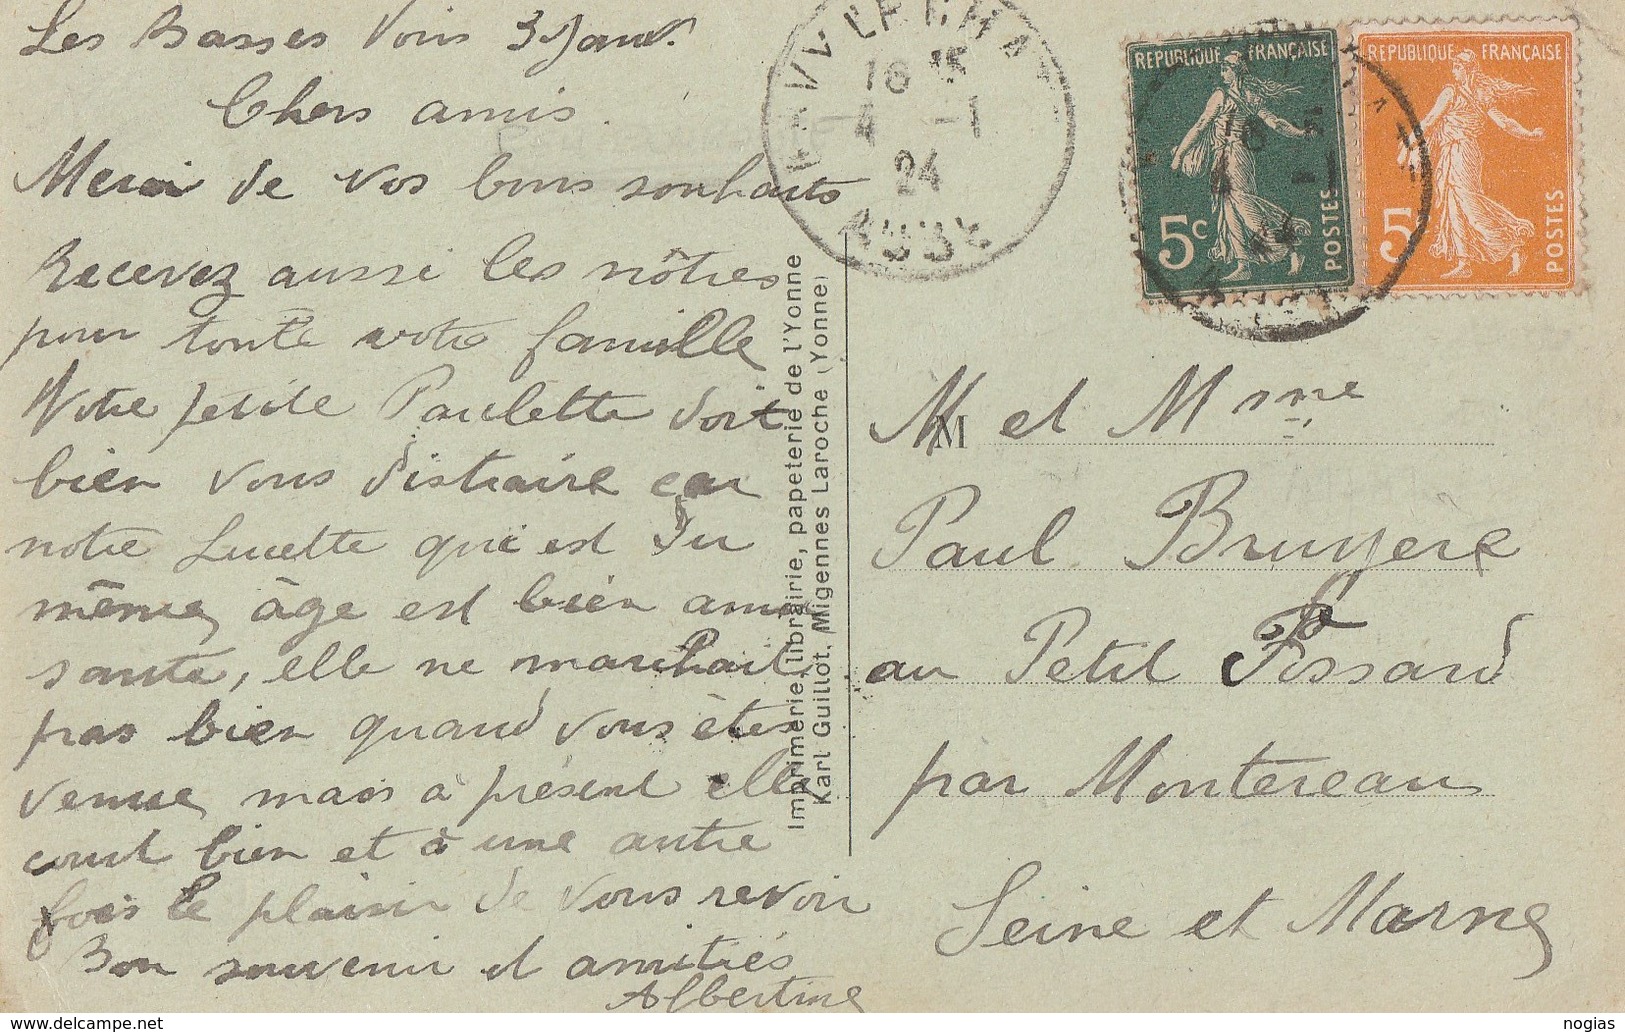 Les Basses Vois 3 Janv.
Chers amis.
Merci de vos bons souhaits
Recevez aussi les nôtres
pour toute votre famille
Votre petite Paulette doit
bien vous distraire car
notre Lucette qui est du
même âge est bien amu
sante, elle ne marchait
pas bien quand vous êtes
venue, mais à présent elle
court bien et à une autre
fois le plaisir de vous revoir
Bon souvenir et amitiés
Albertine
Imprimerie, librairie, papeterie de l'Yonne
Karl Guillot, Migennes Laroche (Yonne)
16 15
4 -1
24
AUBE
REPUBLIQUE FRANÇAISE
5c
POSTES
REPUBLIQUE FRANÇAISE
5
POSTES
M
M et Mme
Paul Bruyere
au Petit Fossard
par Montereau
Seine et Marne
delcampe.net
nogias